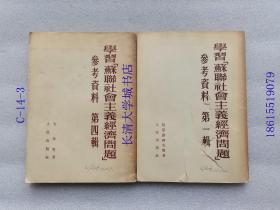 C-14-3
學習「蘇聯社會主義經濟問題」
參考資料 第四輯
人民出版社
長清大学城书店
學習「蘇聯社會主義經濟問題」
參考資料 第一輯
人民出版社
18615519079